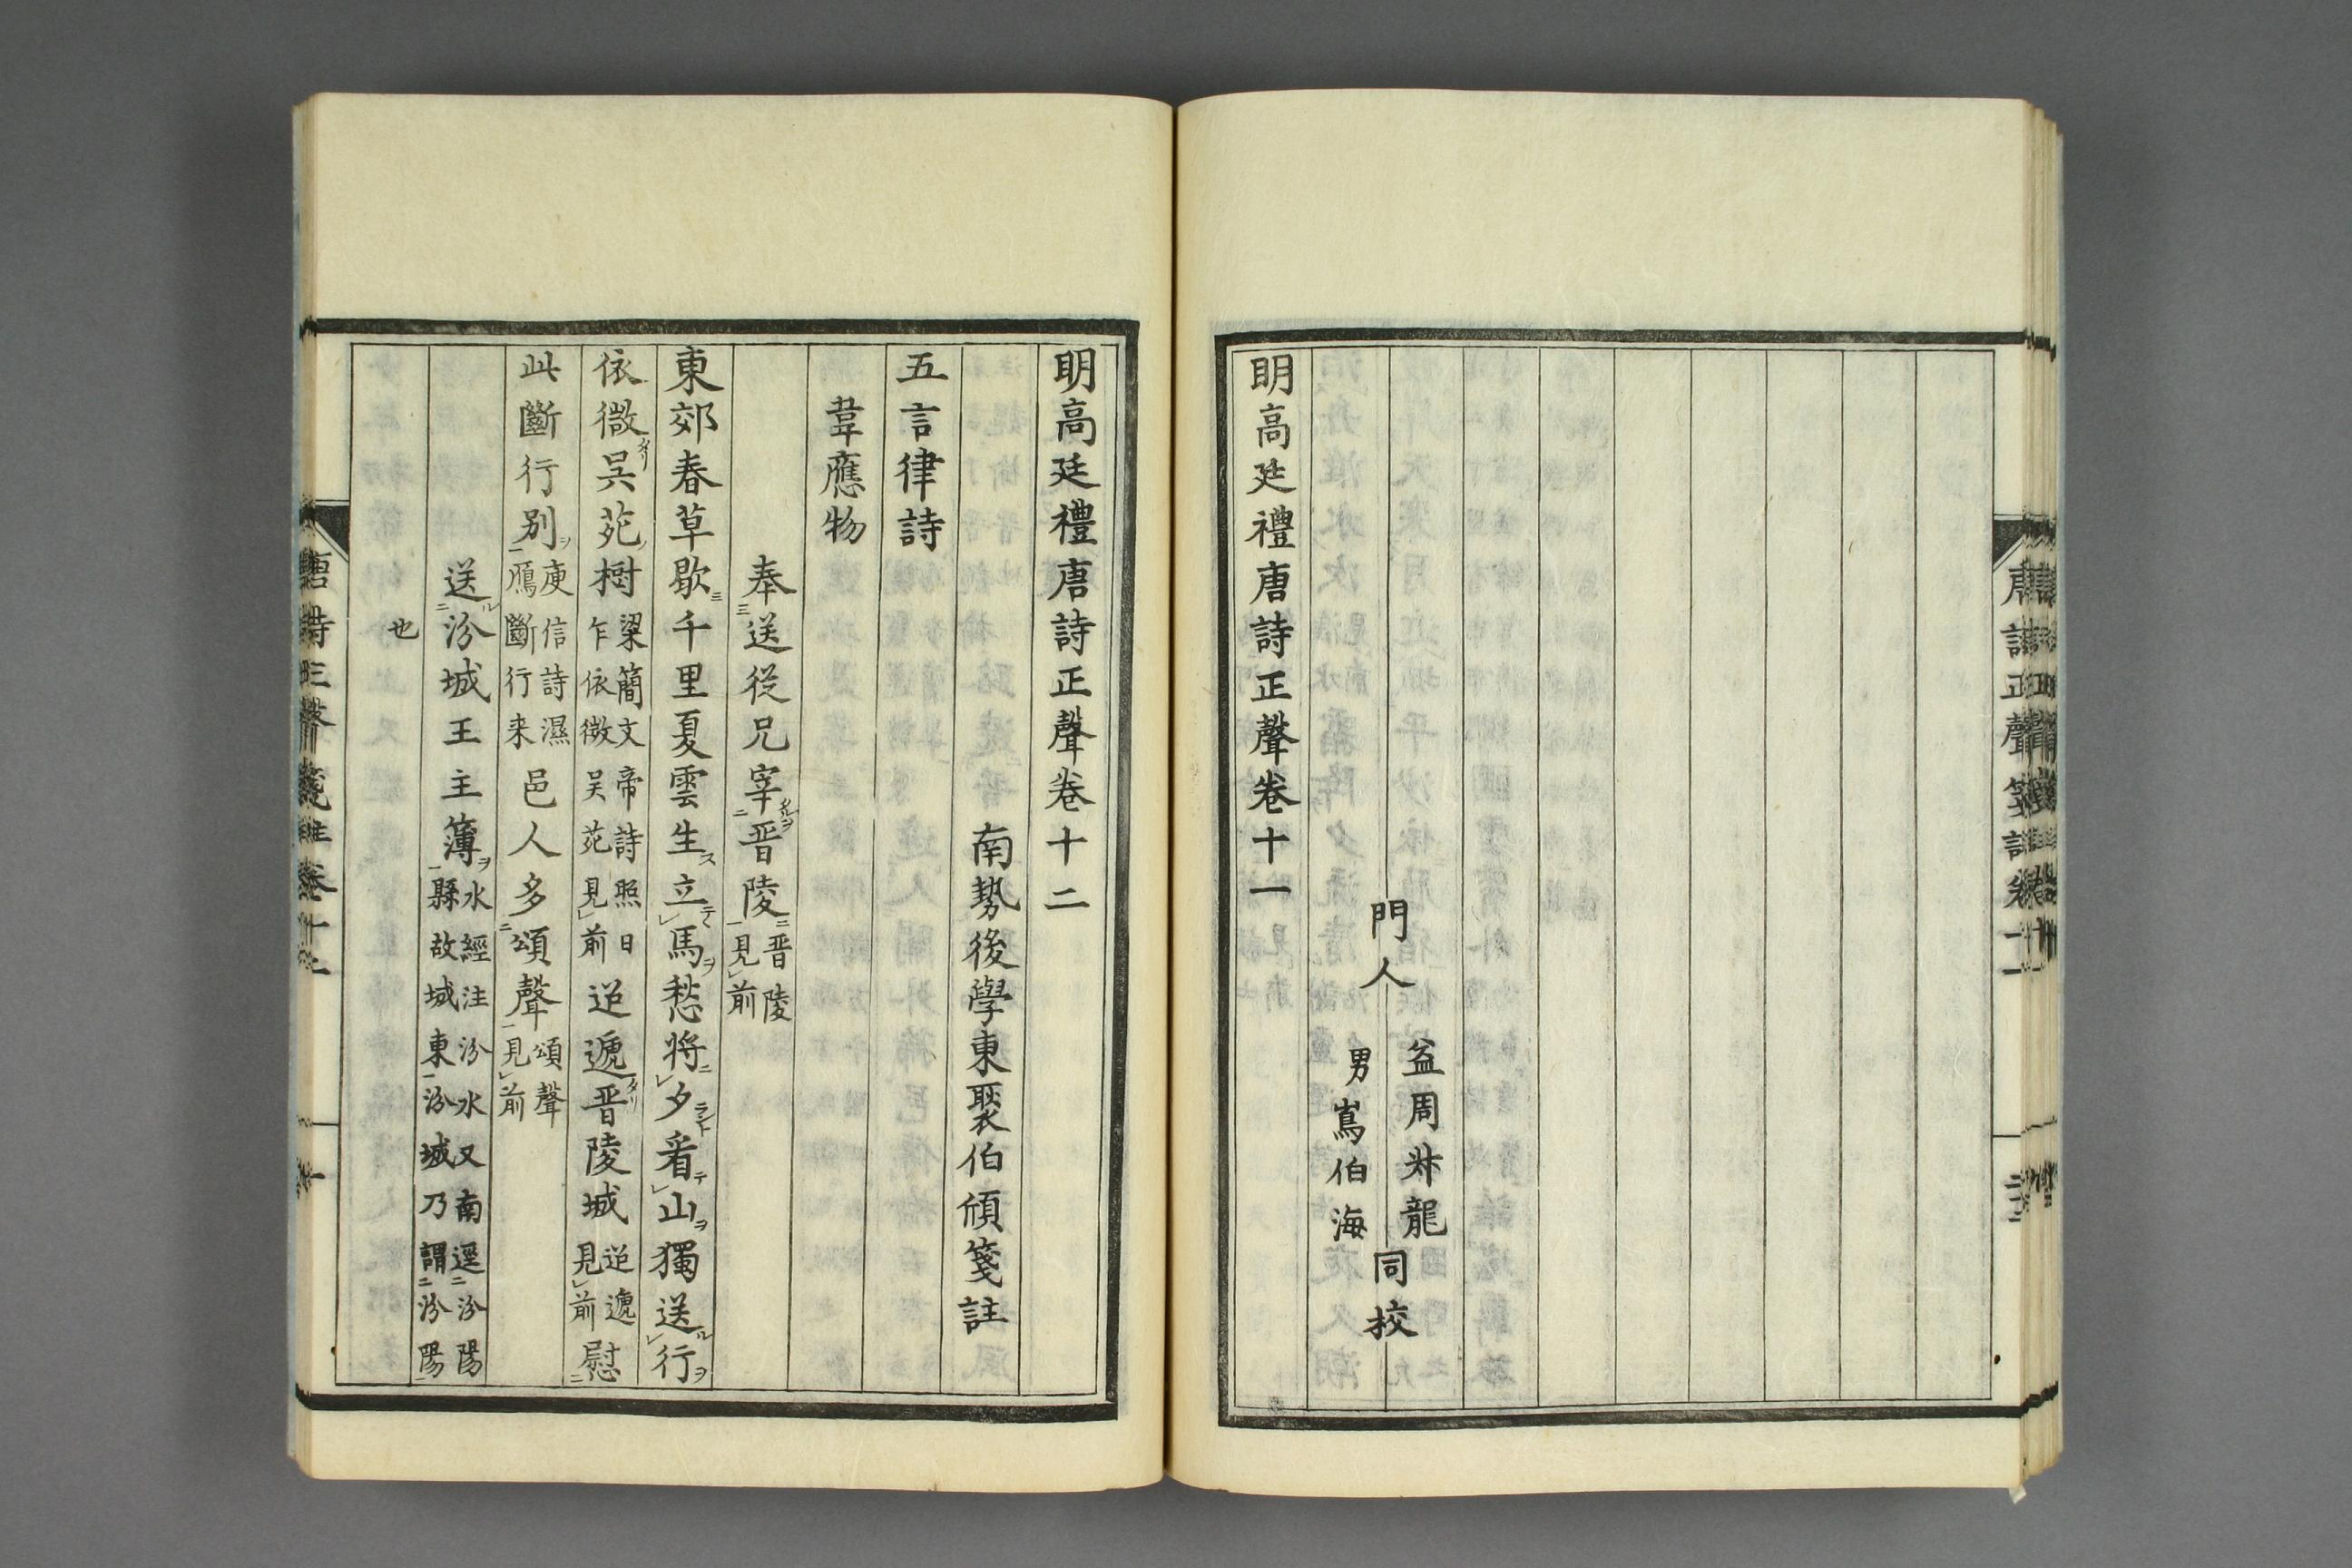 門人
益周舛龍
男嶌伯海
同校
明高廷禮唐詩正聲卷十一
明高廷禮唐詩正聲卷十二
南勢後學東褧伯頎箋註
五言律詩
韋應物
奉送從兄宰晋陵晋陵見前
東郊春草歇千里夏雲生立馬愁将夕看山獨送行
依微呉苑樹梁簡文帝詩照日乍依微吴苑見前迢遞晋陵城迢遞見前慰
此斷行别庾信詩濕鴈斷行来邑人多頌聲頌聲見前
送汾城王主簿水經注汾水又南逕汾陽縣故城東汾城乃謂汾陽
也
唐詩正聲箋註卷十二